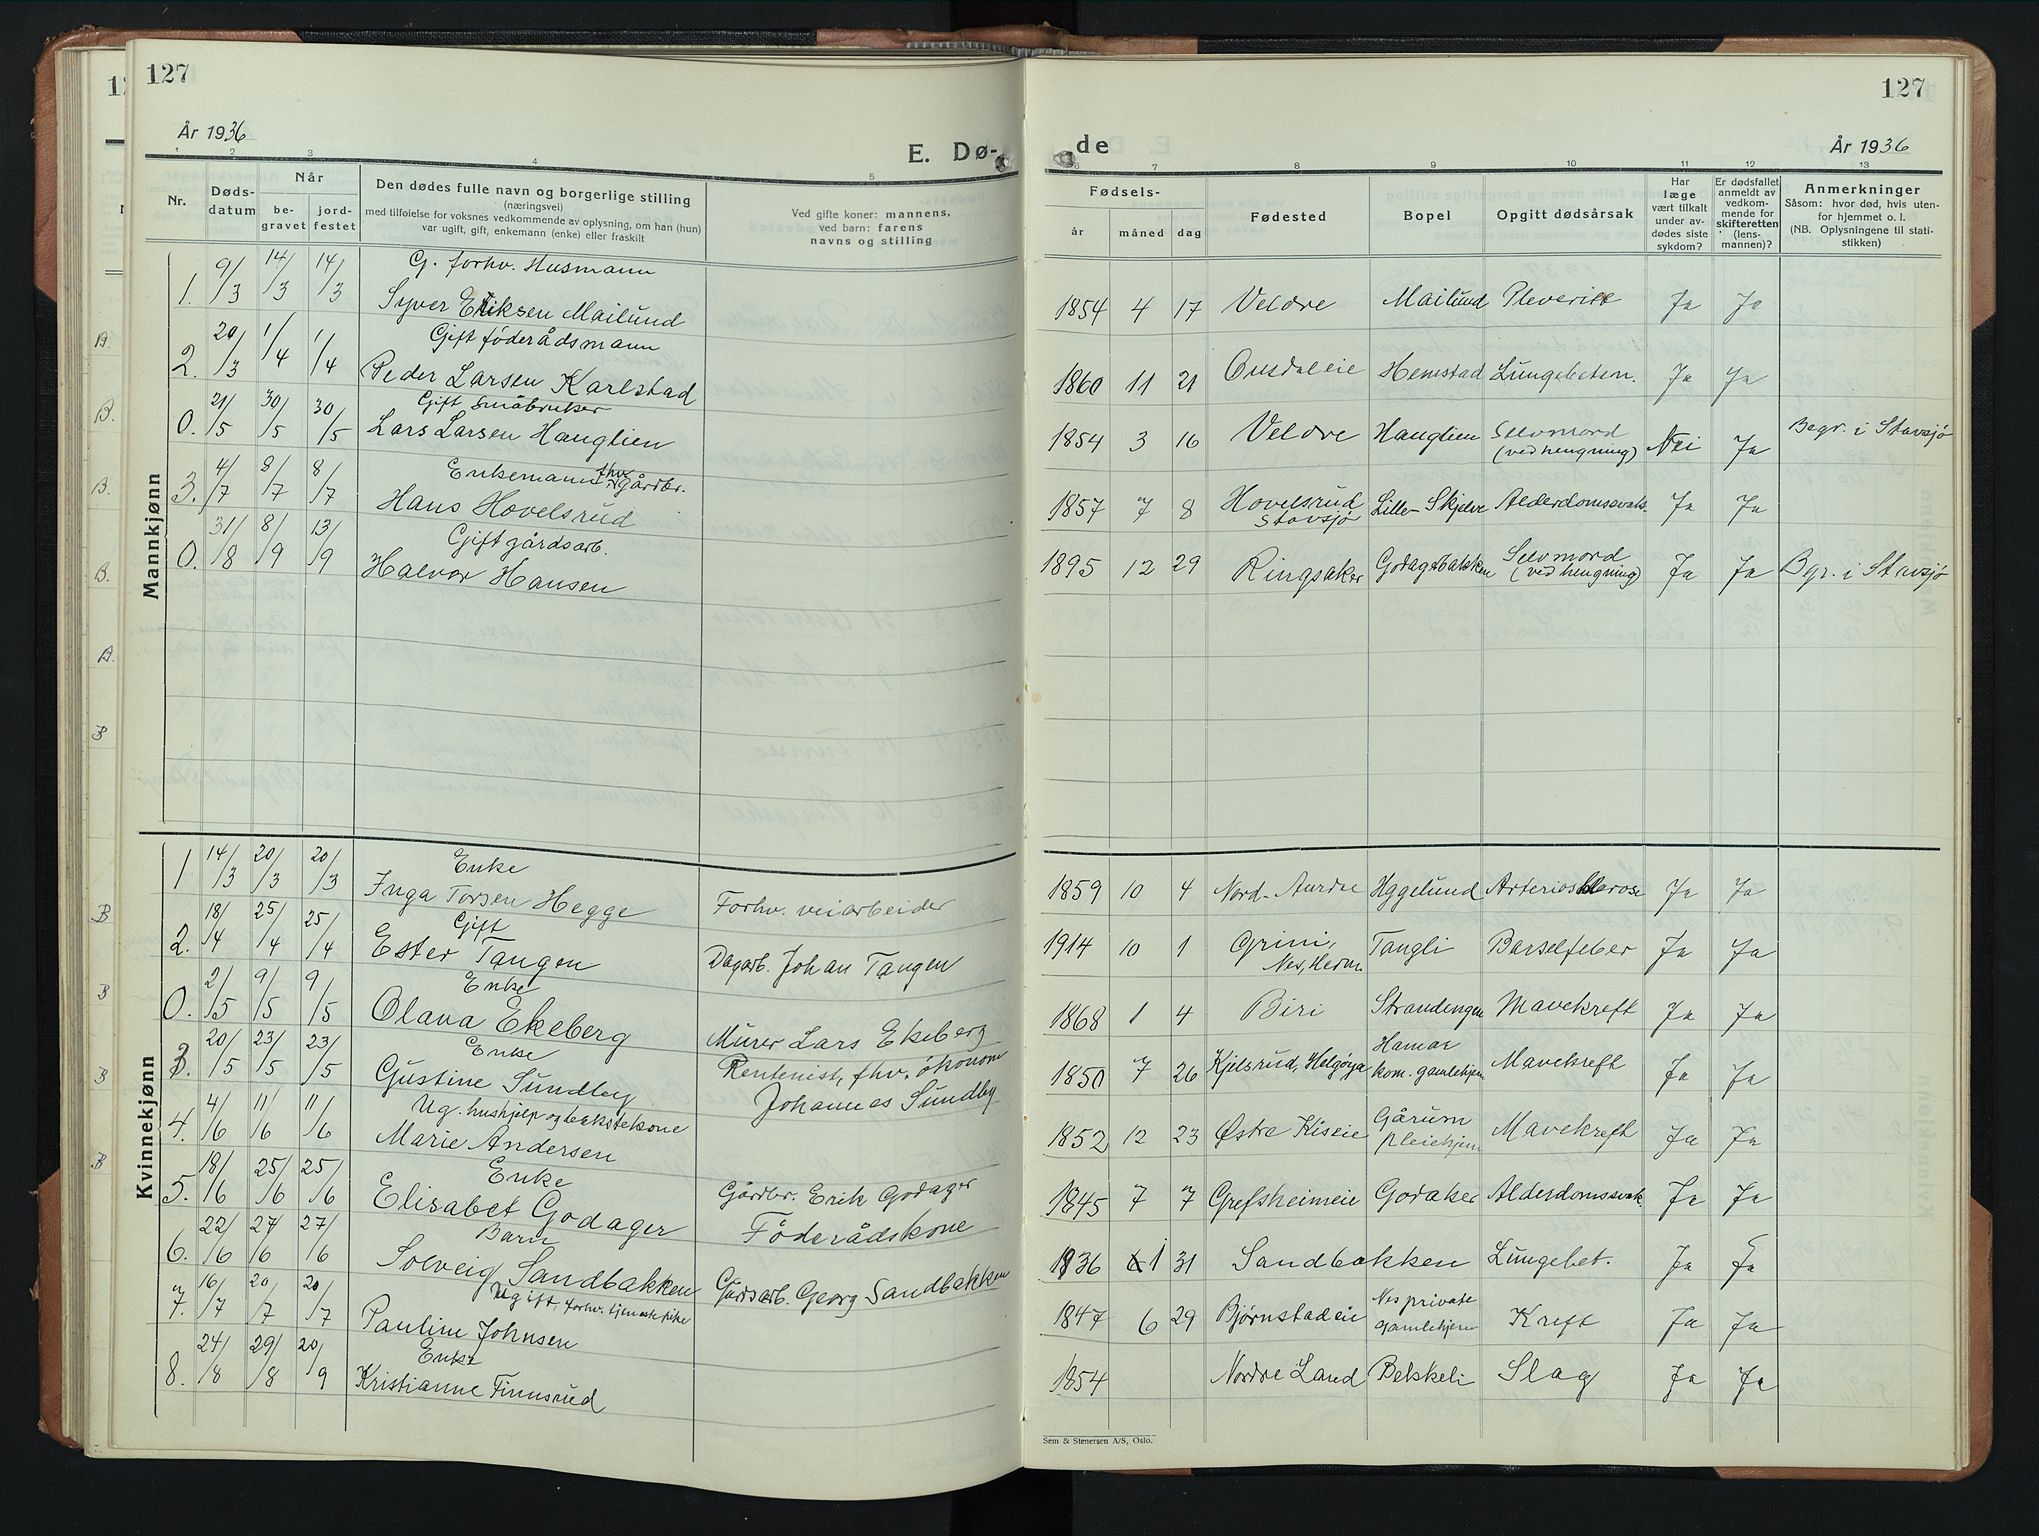 127
127
År 1936
E. Dø-
de
År 1936
1 2 3 4 5
6 7 8 9 10 11 12 13
Nr.
Dødsdatum
Når
begravet
jordfestet
Den dødes fulle navn og borgerlige stilling
(næringsvei)
med tilføielse for voksnes vedkommende av oplysning, om han (hun)
var ugift, gift, enkemann (enke) eller fraskilt
Ved gifte koner: mannens,
ved barn: farens
navns og stilling
Fødsels-
år måned dag
Fødested
Bopel
Opgitt dødsårsak
Har
læge
vært tilkalt
under avdødes siste
sykdom?
Er dødsfallet
anmeldt av
vedkommende for
skifteretten
(lensmannen)?
Anmerkninger
Såsom: hvor død, hvis utenfor hjemmet o. l.
(NB. Oplysningene til statistikken)
Mannkjønn
G. forhv. Husmann
1. 9/3 14/3 14/3 Syver Eriksen Mailund 1854 4 17 Veldre Mailund Pleverit Ja Ja
Gift føderådsmann
2. 20/3 1/4 1/4 Peder Larsen Karlstad 1860 11 21 Hemstad Lungebeten. Ja Ja
Gift Småbruker
0. 21/5 30/5 30/5 Lars Larsen Hauglien 1854 3 16 Veldre Hauglien Selvmord (ved hengning) Nei Ja Begr. i Stavsjø
Enkemann fhv. Gårdbr.
3. 4/7 8/7 8/7 Hans Hovelsrud 1857 7 8 Hovelsrud Stavsjø Lille-Skjelve Alderdomssvak. Ja Ja
Gift gårdsarb.
0. 31/8 8/9 13/9 Halvor Hansen 1895 12 29 Ringsaker Godagsbakken Selvmord (ved hengning) Ja Ja Bgr. i Stavsjø
Kvinnekjønn
Enke
1 14/3 20/3 20/3 Inga Torsen Hegge Forhv. veiarbeider 1859 10 4 Nord-Aurdre Hggelund Arterosklerose Ja Ja
Gift
2. 18/4 25/4 25/4 Ester Tangen Dagarb. Johan Tangen 1914 10 1 Grini, Nes, Hedm. Tangli Barselfeber Ja Ja
Enke
0. 2/5 9/5 9/5 Olava Ekeberg Murer Lars Ekeberg 1868 1 4 Biri Strandengen Mavekreft Ja Ja
Enke
3. 20/5 23/5 23/5 Gustine Sundby Rentenist, fhv. økonom Johannes Sundby 1850 7 26 Kjelsrud, Helgøya Hamar kom. gamlehjem Mavekreft Ja Ja
Ug. hushjelp og bakstekone
4. 4/6 11/6 11/6 Marie Andersen 1852 12 23 Østre Kiseie Gårum pleiehjem Mavekreft Ja Ja
Enke
5. 18/6 25/6 25/6 Elisabet Godager Gårdbr. Erik Godager Føderådskone 1845 7 7 Grefsheimeie Godaker Alderdomssvak. Ja Ja
Barn
6. 22/6 27/6 27/6 Solveig Sandbakken Gårdsarb. Georg Sandbakken 1936 1 31 Sandbakken Lungebet. Ja Ja
Ugift, forhv. tjenestepike
7. 16/7 20/7 20/7 Pauline Johnsen 1847 6 29 Bjørnstadeie Nes private gamlehjem Kreft Ja Ja
Enke
8. 24/8 29/8 20/9 Kristianne Finnsrud 1854 Nordre Land Belskeli Slag Ja Ja
Sem & Stenersen A/S, Oslo.